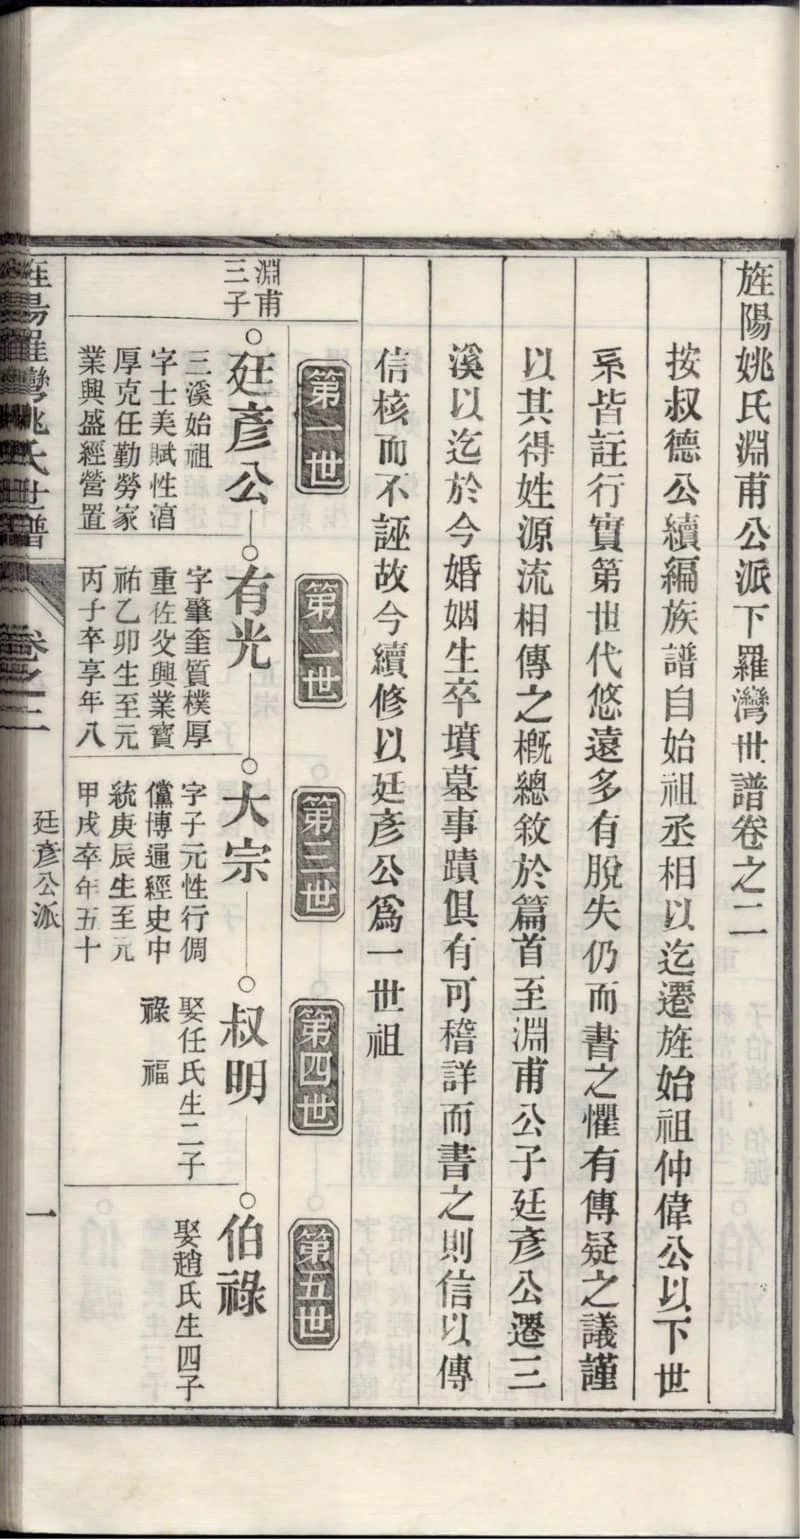 旌陽姚氏淵甫公派下羅灣世譜卷之二
按叔德公續編族譜自始祖丞相以迄遷旌始祖仲偉公以下世
系皆註行實第世代悠遠多有脫失仍而書之懼有傳疑之議謹
以其得姓源流相傳之槪總敘於篇首至淵甫公子廷彥公遷三
溪以迄於今婚姻生卒墳墓事蹟俱有可稽詳而書之則信以傳
信核而不誣故今續修以廷彥公爲一世祖
第一世
第二世
第三世
第四世
第五世
淵甫
三子
廷彥公
三溪始祖
字士美賦性渲
厚克任勤勞家
業興盛經營置
有光
字肇奎質樸厚
重佐父興業寶
祐乙卯生至元
丙子卒享年八
大宗
字子元性行倜
儻博通經史中
統庚辰生至元
甲戌卒年五十
叔明
娶任氏生二子
祿 福
伯祿
娶趙氏生四子
旌陽羅灣姚氏世譜
卷之二
廷彥公派
一